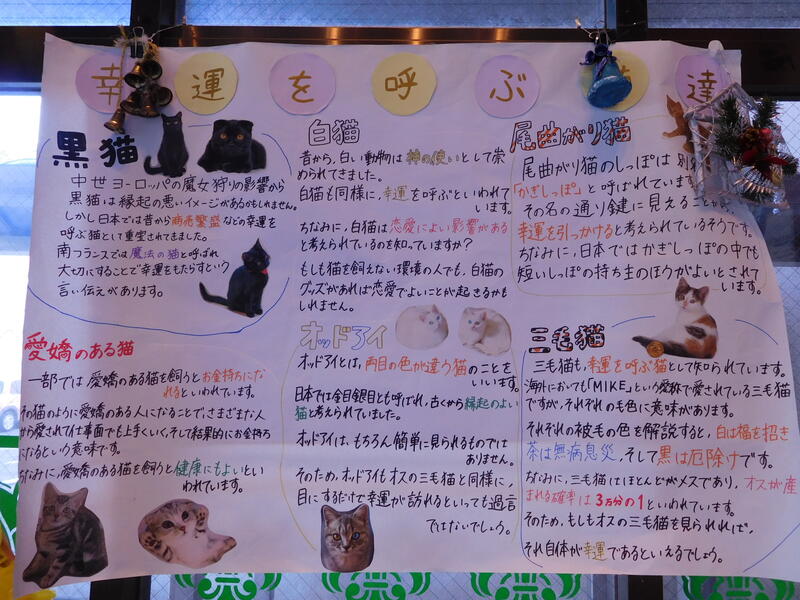 幸運を呼ぶ 達
黒猫
中世ヨーロッパの魔女狩りの影響から
黒猫は縁起の悪いイメージがあるかもしれません。
しかし日本では昔から商売繁盛などの幸運を
呼ぶ猫として重宝されてきました。
南フランスでは魔法の猫と呼ばれ
大切にすることで幸運をもたらすという
言い伝えがあります。
白猫
昔から、白い動物は神の使いとして崇
められてきました。
白猫も同様に、幸運を呼ぶといわれて
います。
ちなみに、白猫は恋愛によい影響がある
と考えられているのを知っていますか?
もしも猫を飼えない環境の人でも、白猫の
グッズがあれば恋愛でよいことが起きるかも
しれません。
尾曲がり猫
尾曲がり猫のしっぽは別名
「かぎしっぽ」と呼ばれています
その名の通り鍵に見えることか
幸運を引っかけると考えられているそうです。
ちなみに、日本ではかぎしっぽの中でも
短いしっぽの持ち主のほうがよいとされて
います。
愛嬌のある猫
一部では愛嬌のある猫を飼うとお金持ちにな
れるといわれています。
その猫のように愛嬌のある人になることで、さまざまな人
から愛されて仕事面でも上手くいく、そして結果的にお金持ち
になるという意味です。
ちなみに、愛嬌のある猫を飼うと健康にもよいとい
われています。
オッドアイ
オッドアイとは、両目の色が違う猫のことを
いいます。
日本では金目銀目とも呼ばれ、古くから縁起のよい
猫と考えられていました。
オッドアイは、もちろん簡単に見られるものでは
ありません。
そのため、オッドアイもオスの三毛猫と同様に、
目にするだけで幸運が訪れるといっても過言
ではないでしょう。
三毛猫
三毛猫も、幸運を呼ぶ猫として知られています。
海外においても「MIKE」という愛称で愛されている三毛猫
ですが、それぞれの毛色に意味があります。
それぞれの被毛の色を解説すると、白は福を招き
茶は無病息災、そして黒は厄除けです。
ちなみに、三毛猫はほとんどがメスであり、オスが産
まれる確率は3万分の1といわれています。
そのため、もしもオスの三毛猫を見られれば、
それ自体が幸運であるといえるでしょう。